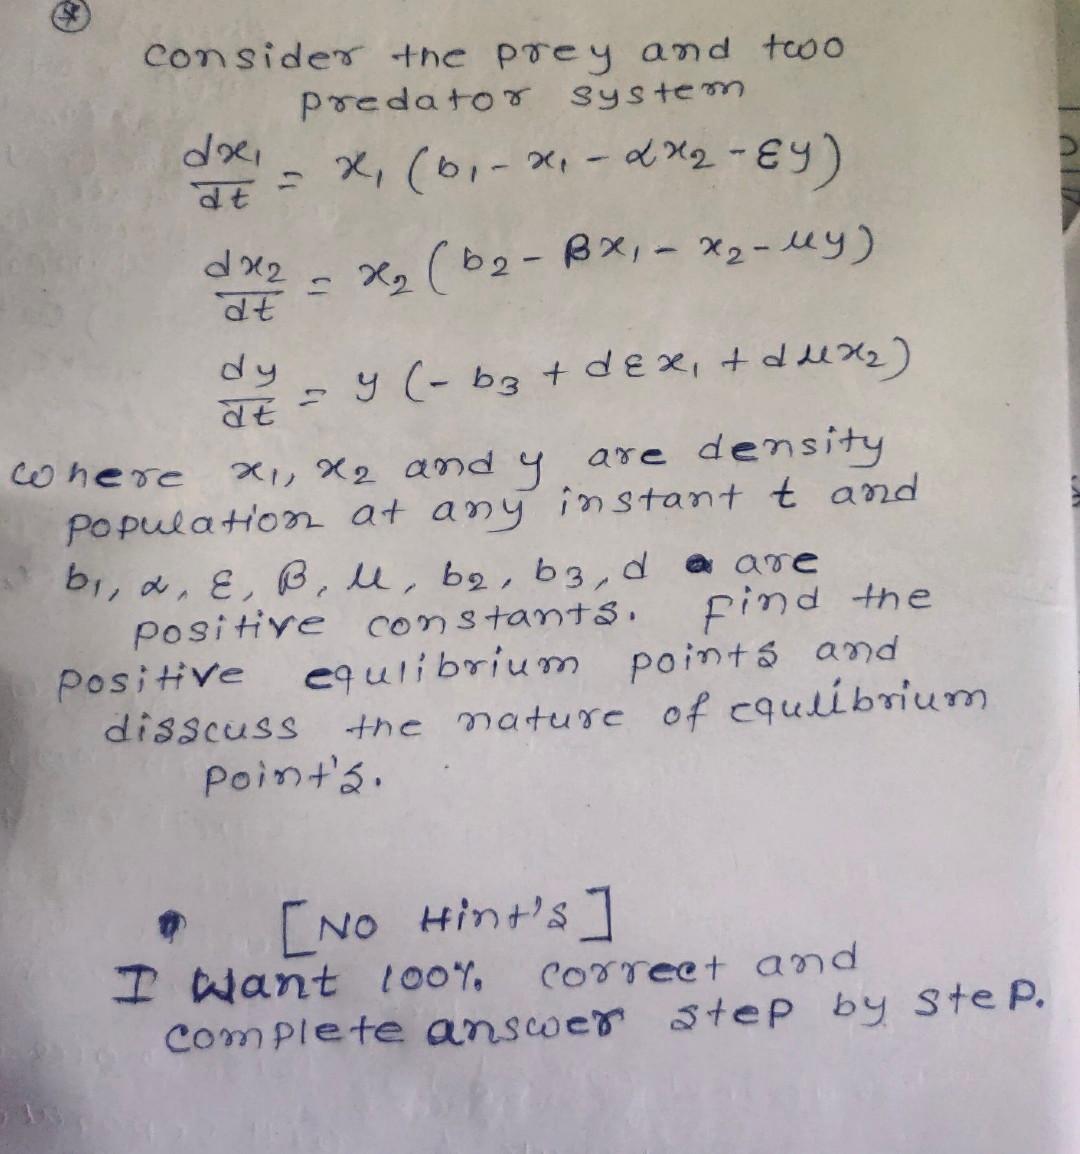 *
consider the prey and two
predator system
dx₁/dt = x₁ (b₁ - x₁ - αx₂ - εy)
dx₂/dt = x₂ (b₂ - βx₁ - x₂ - μy)
dy/dt = y (- b₃ + dεx₁ + dμx₂)
where x₁, x₂ and y are density
population at any instant t and
b₁, α, ε, β, μ, b₂, b₃, d are
positive constants. Find the
positive equlibrium points and
disscuss the nature of equlibrium
point's.
[NO Hint's]
I want 100% correct and
complete answer step by step.